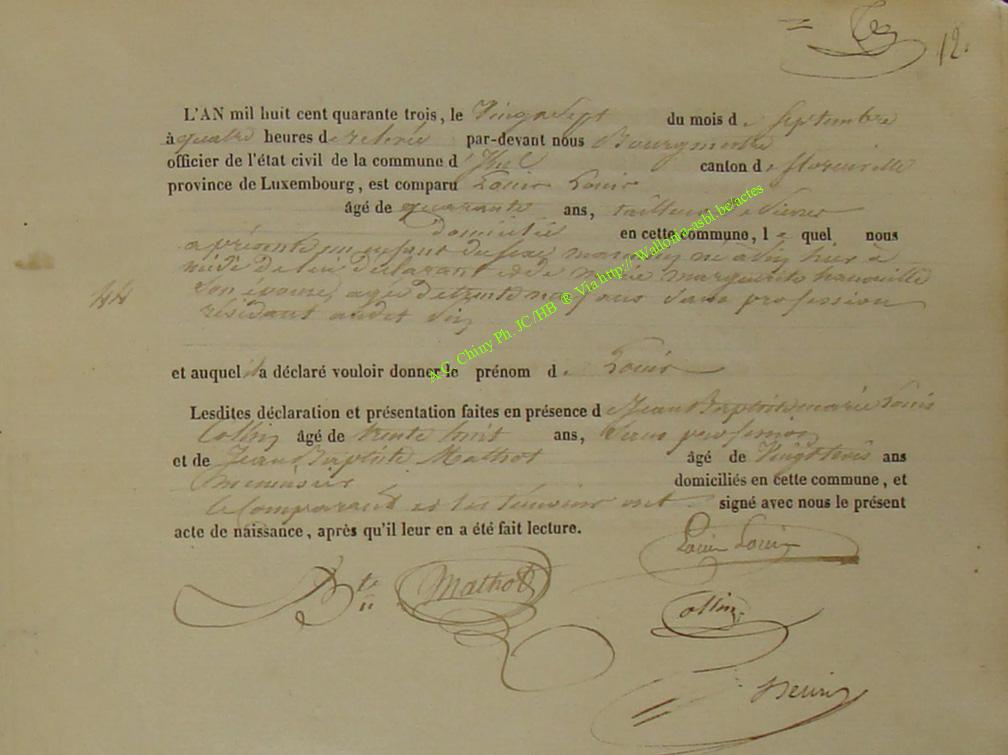 12.
L'AN mil huit cent quarante trois, le Vingt Sept du mois de Septembre
à quatre heures de relevée par-devant nous Bourgmestre
officier de l'état civil de la commune d' canton de florenville
province de Luxembourg, est comparu Louis Louis
âgé de quarante ans, tailleur
domicilié en cette commune, le quel nous
a présenté un enfant du sexe masculin né à hier à
midi de lui déclarant et de Marie marguerite
Son épouse, agée de trente neuf ans Sans profession
résidant audit
44
et auquel il a déclaré vouloir donner le prénom de Louis
Lesdites déclaration et présentation faites en présence de Jean Baptiste marie Louis
Collin âgé de trente huit ans, Sans profession
et de Jean Baptiste Mathot âgé de Vingt trois ans
menuisier domiciliés en cette commune, et
le Comparant et les témoins ont signé avec nous le présent
acte de naissance, après qu'il leur en a été fait lecture.
Louis Louis
Bte Mathot
Collin
A.C. Chiny Ph. JC/HB ® Via http:// Wallonia-asbl.be/actes